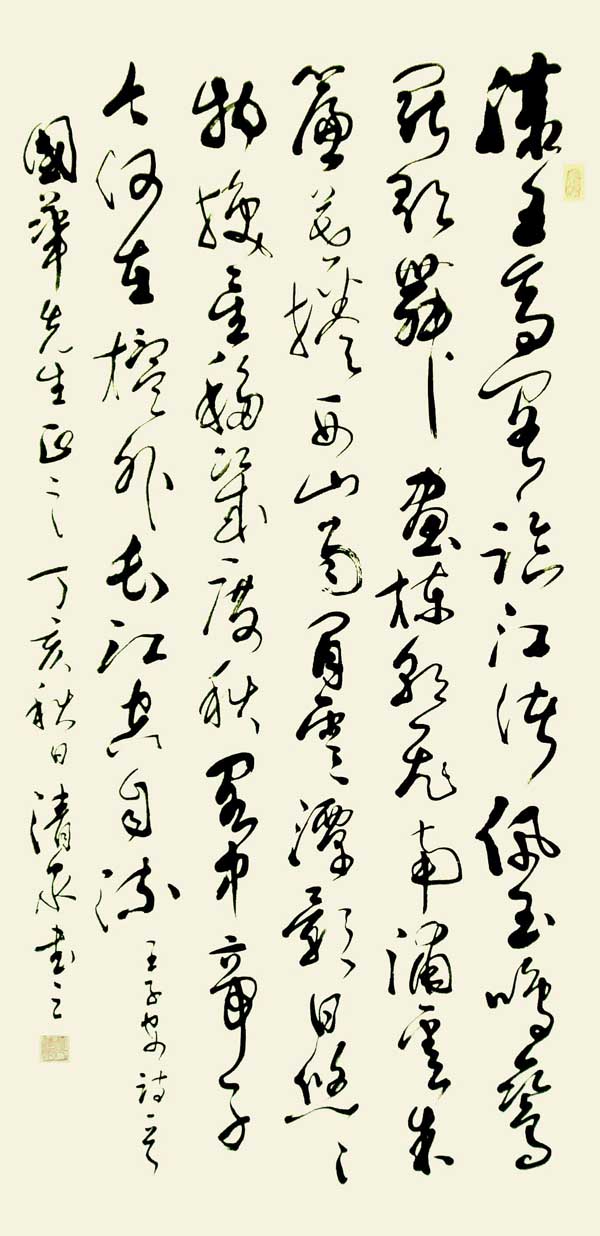 滕王高閣臨江渚佩玉鳴鸞
罷歌舞畫棟朝飛南浦雲朱
簾暮捲西山雨閒雲潭影日悠々
物換星移幾度秋閣中帝子
今何在檻外長江空自流王子安詩一首
國華先生正之丁亥秋日清泉書之